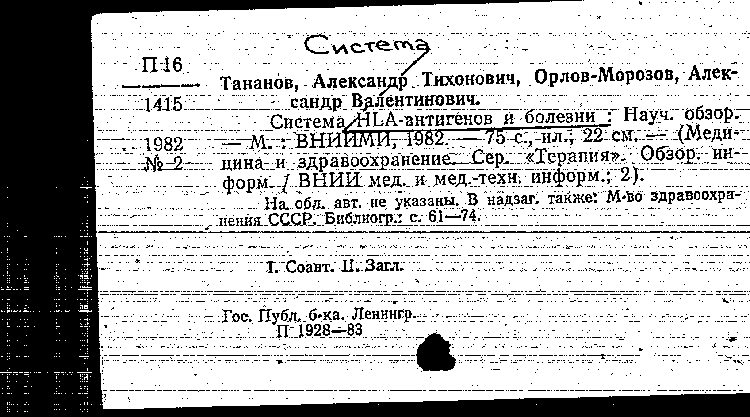 Система
П 16
1415
1982
№ 2
Тананов, Александр Тихонович, Орлов-Морозов, Алек-
сандр Валентинович.
Система HLA-антигенов и болезни : Науч. обзор.
— М. : ВНИИМИ, 1982. — 75 с., ил.; 22 см. — (Меди-
цина и здравоохранение. Сер. «Терапия». Обзор. ин-
форм. / ВНИИ мед. и мед.-техн. информ.; 2).
На обл. авт. не указаны. В надзаг. также: М-во здравоохра-
нения СССР. Библиогр.: с. 61—74.
I. Соавт. II. Загл.
Гос. Публ. б-ка. Ленингр.
П 1928—83